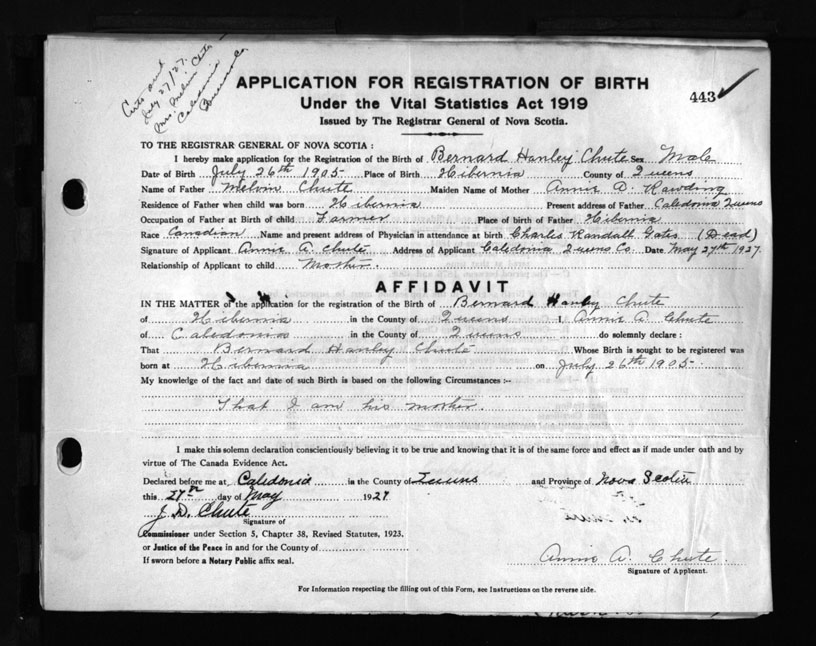 Certs and
July 27/27.
Mrs. Melvin Chute
Caledonia
Queens Co.
APPLICATION FOR REGISTRATION OF BIRTH
443
Under the Vital Statistics Act 1919
Issued by The Registrar General of Nova Scotia.
TO THE REGISTRAR GENERAL OF NOVA SCOTIA :
I hereby make application for the Registration of the Birth of Bernard Hanley Chute Sex Male
Date of Birth July 26th 1905 Place of Birth Hibernia County of Queens
Name of Father Melvin Chute Maiden Name of Mother Annie A. Rawding
Residence of Father when child was born Hibernia Present address of Father Caledonia Queens
Occupation of Father at Birth of child Farmer Place of birth of Father Hibernia
Race Canadian Name and present address of Physician in attendance at birth Charles Randall Gates (Dead)
Signature of Applicant Annie A. Chute Address of Applicant Caledonia Queens Co. Date May 27th 1927.
Relationship of Applicant to child Mother.
AFFIDAVIT
IN THE MATTER of the application for the registration of the Birth of Bernard Hanley Chute
of Hibernia in the County of Queens I, Annie A Chute
of Caledonia in the County of Queens do solemnly declare :
That Bernard Hanley Chute Whose Birth is sought to be registered was
born at Hibernia on July 26th 1905
My knowledge of the fact and date of such Birth is based on the following Circumstances :-
That I am his mother.
I make this solemn declaration conscientiously believing it to be true and knowing that it is of the same force and effect as if made under oath and by
virtue of The Canada Evidence Act.
Declared before me at Caledonia in the County of Queens and Province of Nova Scotia
this 27th day of May 1927
J. D. Chute
Signature of
Commissioner under Section 5, Chapter 38, Revised Statutes, 1923.
or Justice of the Peace in and for the County of
If sworn before a Notary Public affix seal.
Annie A. Chute.
Signature of Applicant.
For Information respecting the filling out of this Form, see Instructions on the reverse side.